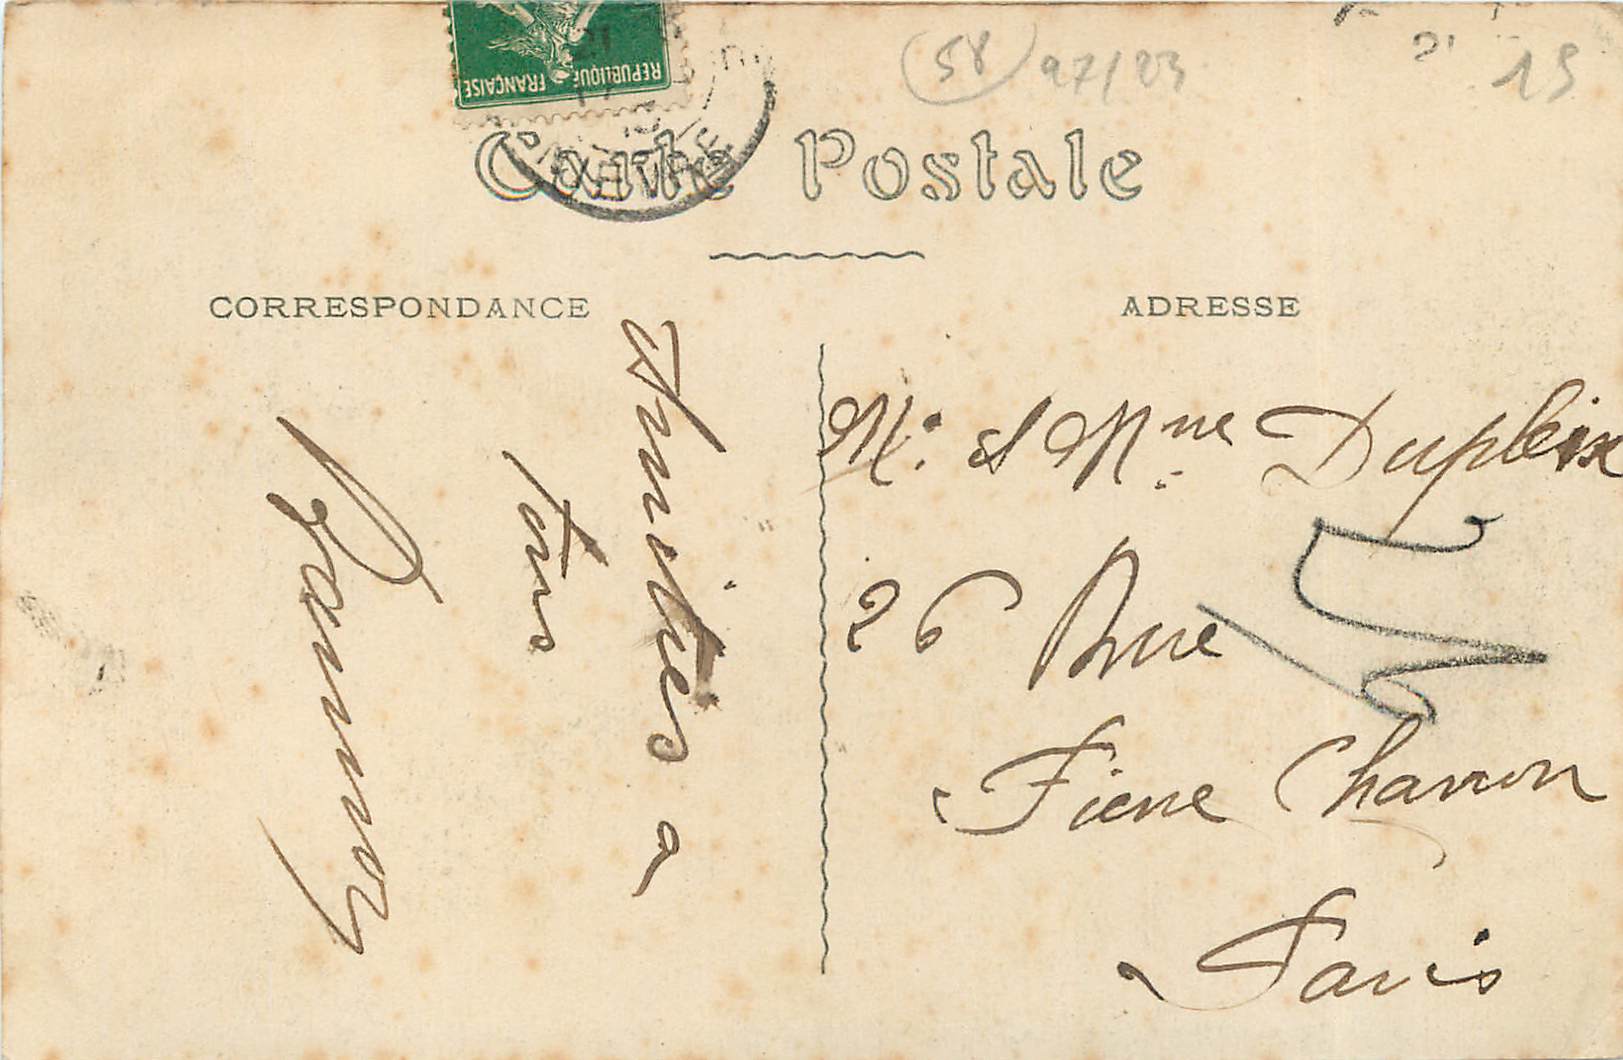 REPUBLIQUE FRANÇAISE
58 97/23
15
Carte Postale
CORRESPONDANCE
ADRESSE
Amitiés a
tous
Mr. et Mme Dupleix
26 Rue
Pierre Charron
Paris